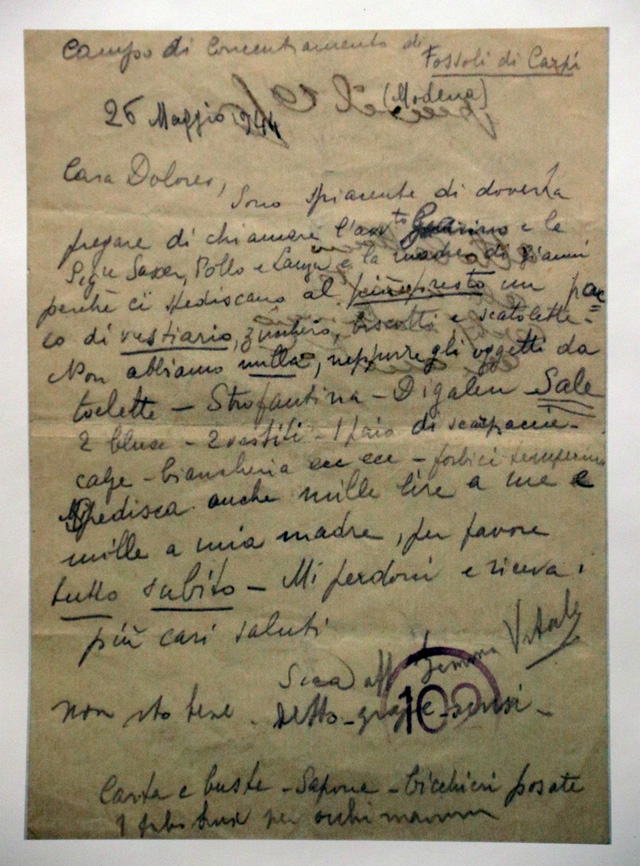 Campo di Concentramento di Fossoli di Carpi
(Modena)
26 Maggio 944
Cara Dolores,
Sono spiacente di doverLa
pregare di chiamare l'avv.to Guarino e la
Sig.ra Saxer, Pollo e e la madre di Gianni
perché ci spediscano al più presto un pac
co di vestiario, zucchero, biscotti e scatolette.
Non abbiamo nulla, neppure gli oggetti da
toelette - Strofantina - Digalen Sale
2 bluse - 2 vestiti - 1 paio di scarpacce -
calze - biancheria ecc ecc - forbici temperino
Spedisca anche mille lire a me e
mille a mia madre, per favore
tutto subito - Mi perdoni e riceva i
più cari saluti
Sua aff. Gemma Vitale
102
non sto bene. Detto - grazie - scusi -
Carta e buste - Sapone - bicchieri posate
1 per